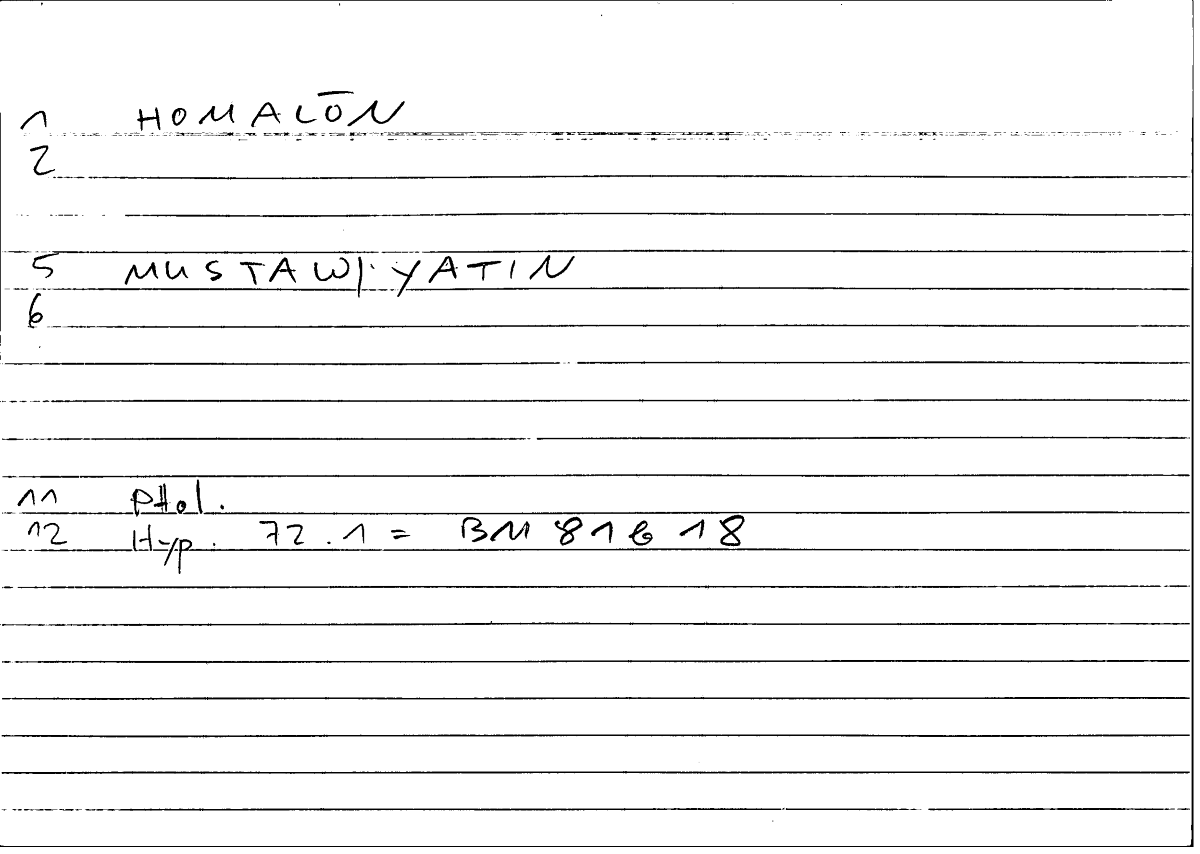 1 HOMALŌN
2
5 MUSTAWIYATIN
6
11 Ptol.
12 Hyp. 72.1 = BM 81b 18